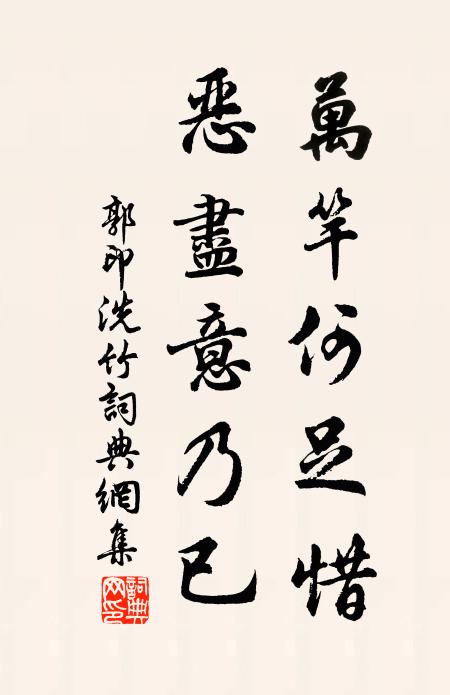 萬竿何足惜
惡盡意乃已
郭印洗竹詞典網集
詞典網印